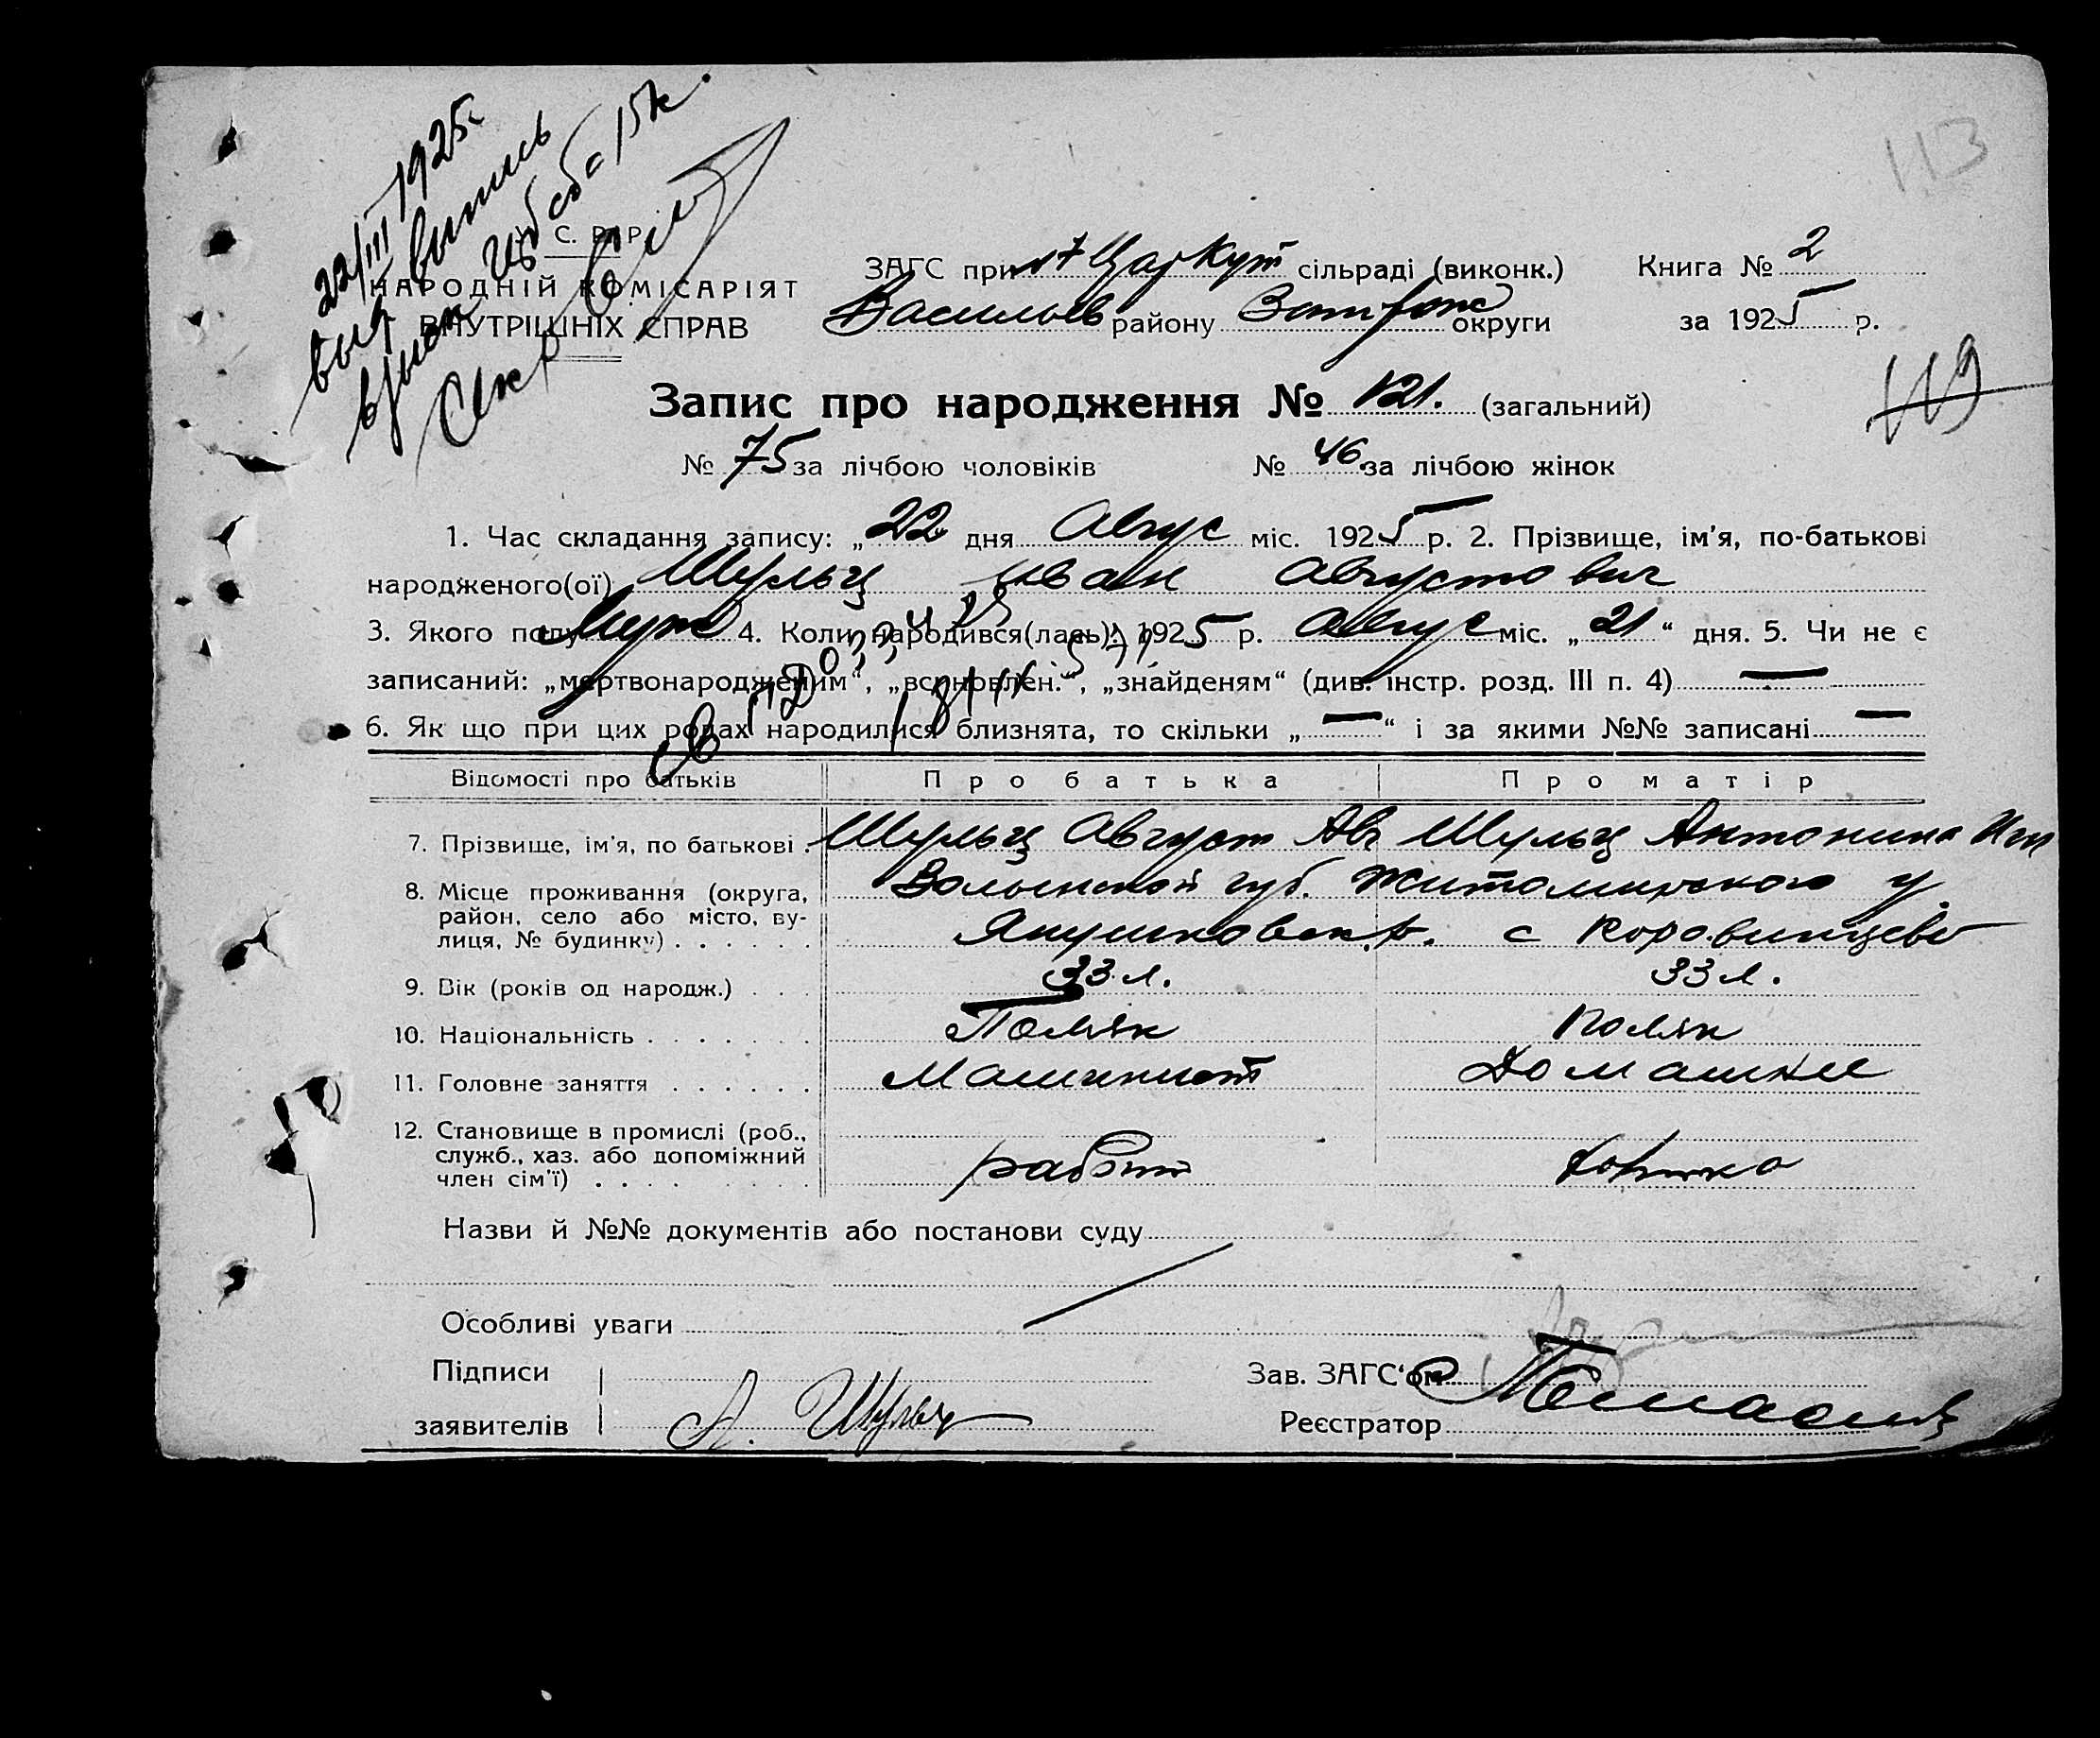 113
22/III 1925г
выпись
У. С. Р. Р.
НАРОДНІЙ КОМІСАРІЯТ
ВНУТРІШНІХ СПРАВ
ЗАГС при Царкут сільраді (виконк.) Книга № 2
Васильев району округи за 1925 р.
119
Запис про народження № 121. (загальний)
№ 75 за лічбою чоловіків № 46 за лічбою жінок
1. Час складання запису: „22 дня Авгус міс. 1925 р. 2. Прізвище, ім'я, по-батькові
народженого(ої) Шульц Иван Августович
3. Якого полу Муж 4. Коли народився(лась): 1925 р. Авгус міс. „21“ дня. 5. Чи не є
записаний: „мертвонародженим“, „всиновлен.“, „знайденям“ (див. інстр. розд. III п. 4) —
6. Як що при цих родах народилися близнята, то скільки „—“ і за якими №№ записані —
Відомості про батьків Про батька Про матір
7. Прізвище, ім'я, по батькові . Шульц Август Авг Шульц Антонина
8. Місце проживання (округа, Волынской губ. Житомирского у.
район, село або місто, ву-
лиця, № будинку) . . . . . . с
9. Вік (років од народж.) . . . 33 л. 33 л.
10. Національність . . . . . . . Поляк Поляк
11. Головне заняття . . . . . . Машинист Домашнее
12. Становище в промислі (роб.,
служб., хаз. або допоміжний
член сім'ї) . . . . . . . . . работ
Назви й №№ документів або постанови суду
Особливі уваги
Підписи Зав. ЗАГС‘ом
заявителів А. Шульц Реєстратор